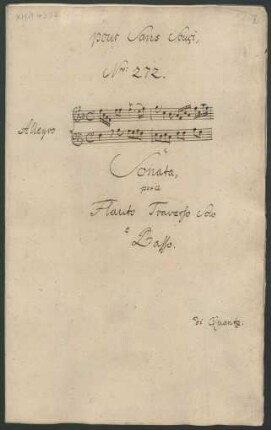 pour Sans Souçi,
No: 272.
Allegro
Sonata,
per il
Flauto Traverso Solo
è
Basso.
di Quantz.